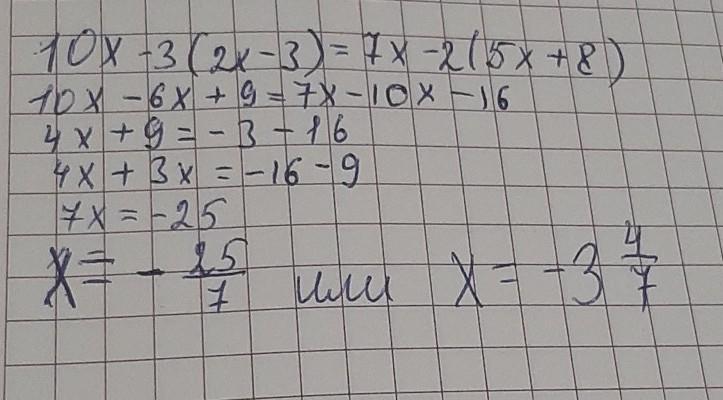 10x - 3(2x - 3) = 7x - 2(5x + 8)
10x - 6x + 9 = 7x - 10x - 16
4x + 9 = -3 - 16
4x + 3x = -16 - 9
7x = -25
x = - 25/7 или x = -3 4/7